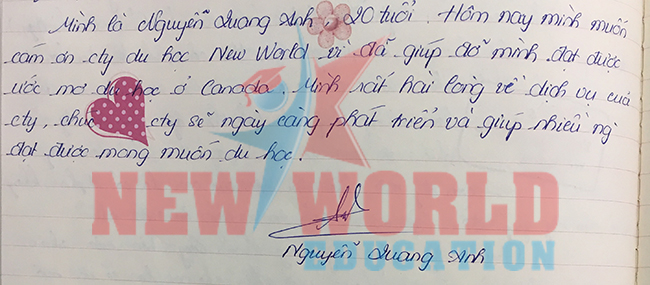 Mình là Nguyễn Quang Anh, 20 tuổi. Hôm nay mình muốn
cám ơn cty du học New World vì đã giúp đỡ mình đạt được
ước mơ du học ở Canada. Mình rất hài lòng về dịch vụ của
cty, chúc cty sẽ ngày càng phát triển và giúp nhiều ng
đạt được mong muốn du học.
NEW WORLD
EDUCATION
Nguyễn Quang Anh